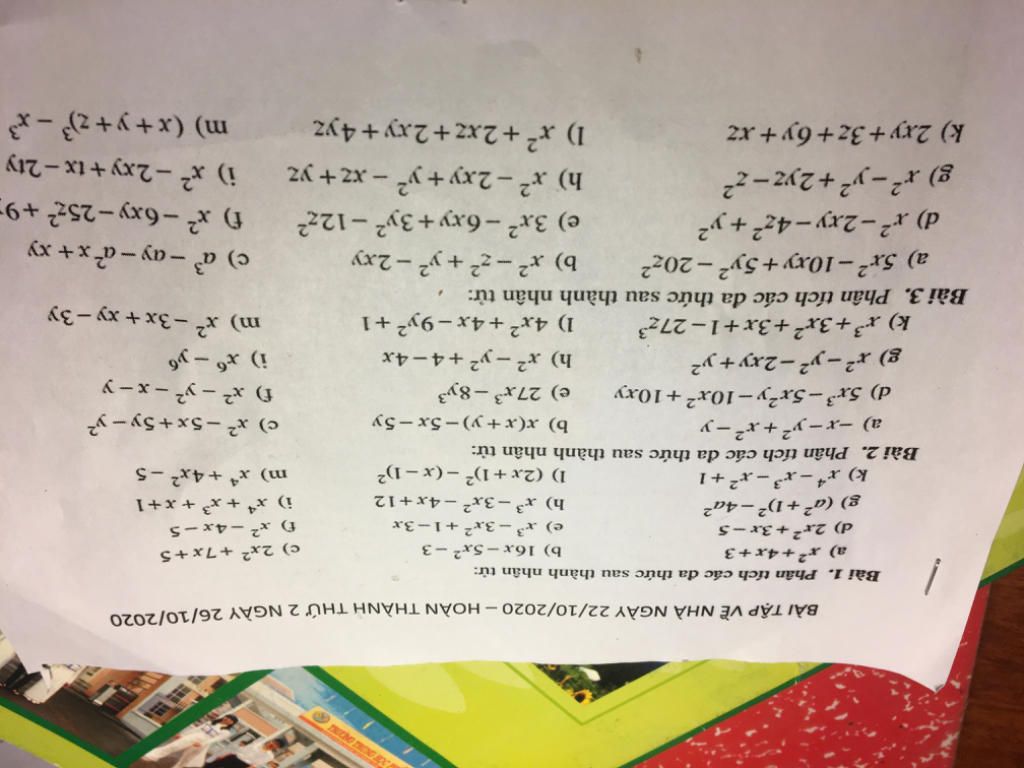 BÀI TẬP VỀ NHÀ NGÀY 22/10/2020 – HOÀN THÀNH THỨ 2 NGÀY 26/10/2020
Bài 1. Phân tích các đa thức sau thành nhân tử:
a) x² + 4x + 3 b) 16x − 5x² − 3 c) 2x² + 7x + 5
d) 2x² + 3x − 5 e) x³ − 3x² + 1 − 3x f) x² − 4x − 5
g) (a² + 1)² − 4a² h) x³ − 3x² − 4x + 12 i) x⁴ + x³ + x + 1
k) x⁴ − x³ − x² + 1 l) (2x + 1)² − (x − 1)² m) x⁴ + 4x² − 5
Bài 2. Phân tích các đa thức sau thành nhân tử:
a) −x − y² + x² − y b) x(x + y) − 5x − 5y c) x² − 5x + 5y − y²
d) 5x³ − 5x²y − 10x² + 10xy e) 27x³ − 8y³ f) x² − y² − x − y
g) x² − y² − 2xy + y² h) x² − y² + 4 − 4x i) x⁶ − y⁶
k) x³ + 3x² + 3x + 1 − 27z³ l) 4x² + 4x − 9y² + 1 m) x² − 3x + xy − 3y
Bài 3. Phân tích các đa thức sau thành nhân tử:
a) 5x² − 10xy + 5y² − 20z² b) x² − z² + y² − 2xy c) a³ − ay − a²x + xy
d) x² − 2xy − 4z² + y² e) 3x² − 6xy + 3y² − 12z² f) x² − 6xy − 25z² + 9
g) x² − y² + 2yz − z² h) x² − 2xy + y² − xz + yz i) x² − 2xy + tx − 2ty
k) 2xy + 3z + 6y + xz l) x² + 2xz + 2xy + 4yz m) (x + y + z)³ − x³
TRƯỜNG TRUNG HỌC